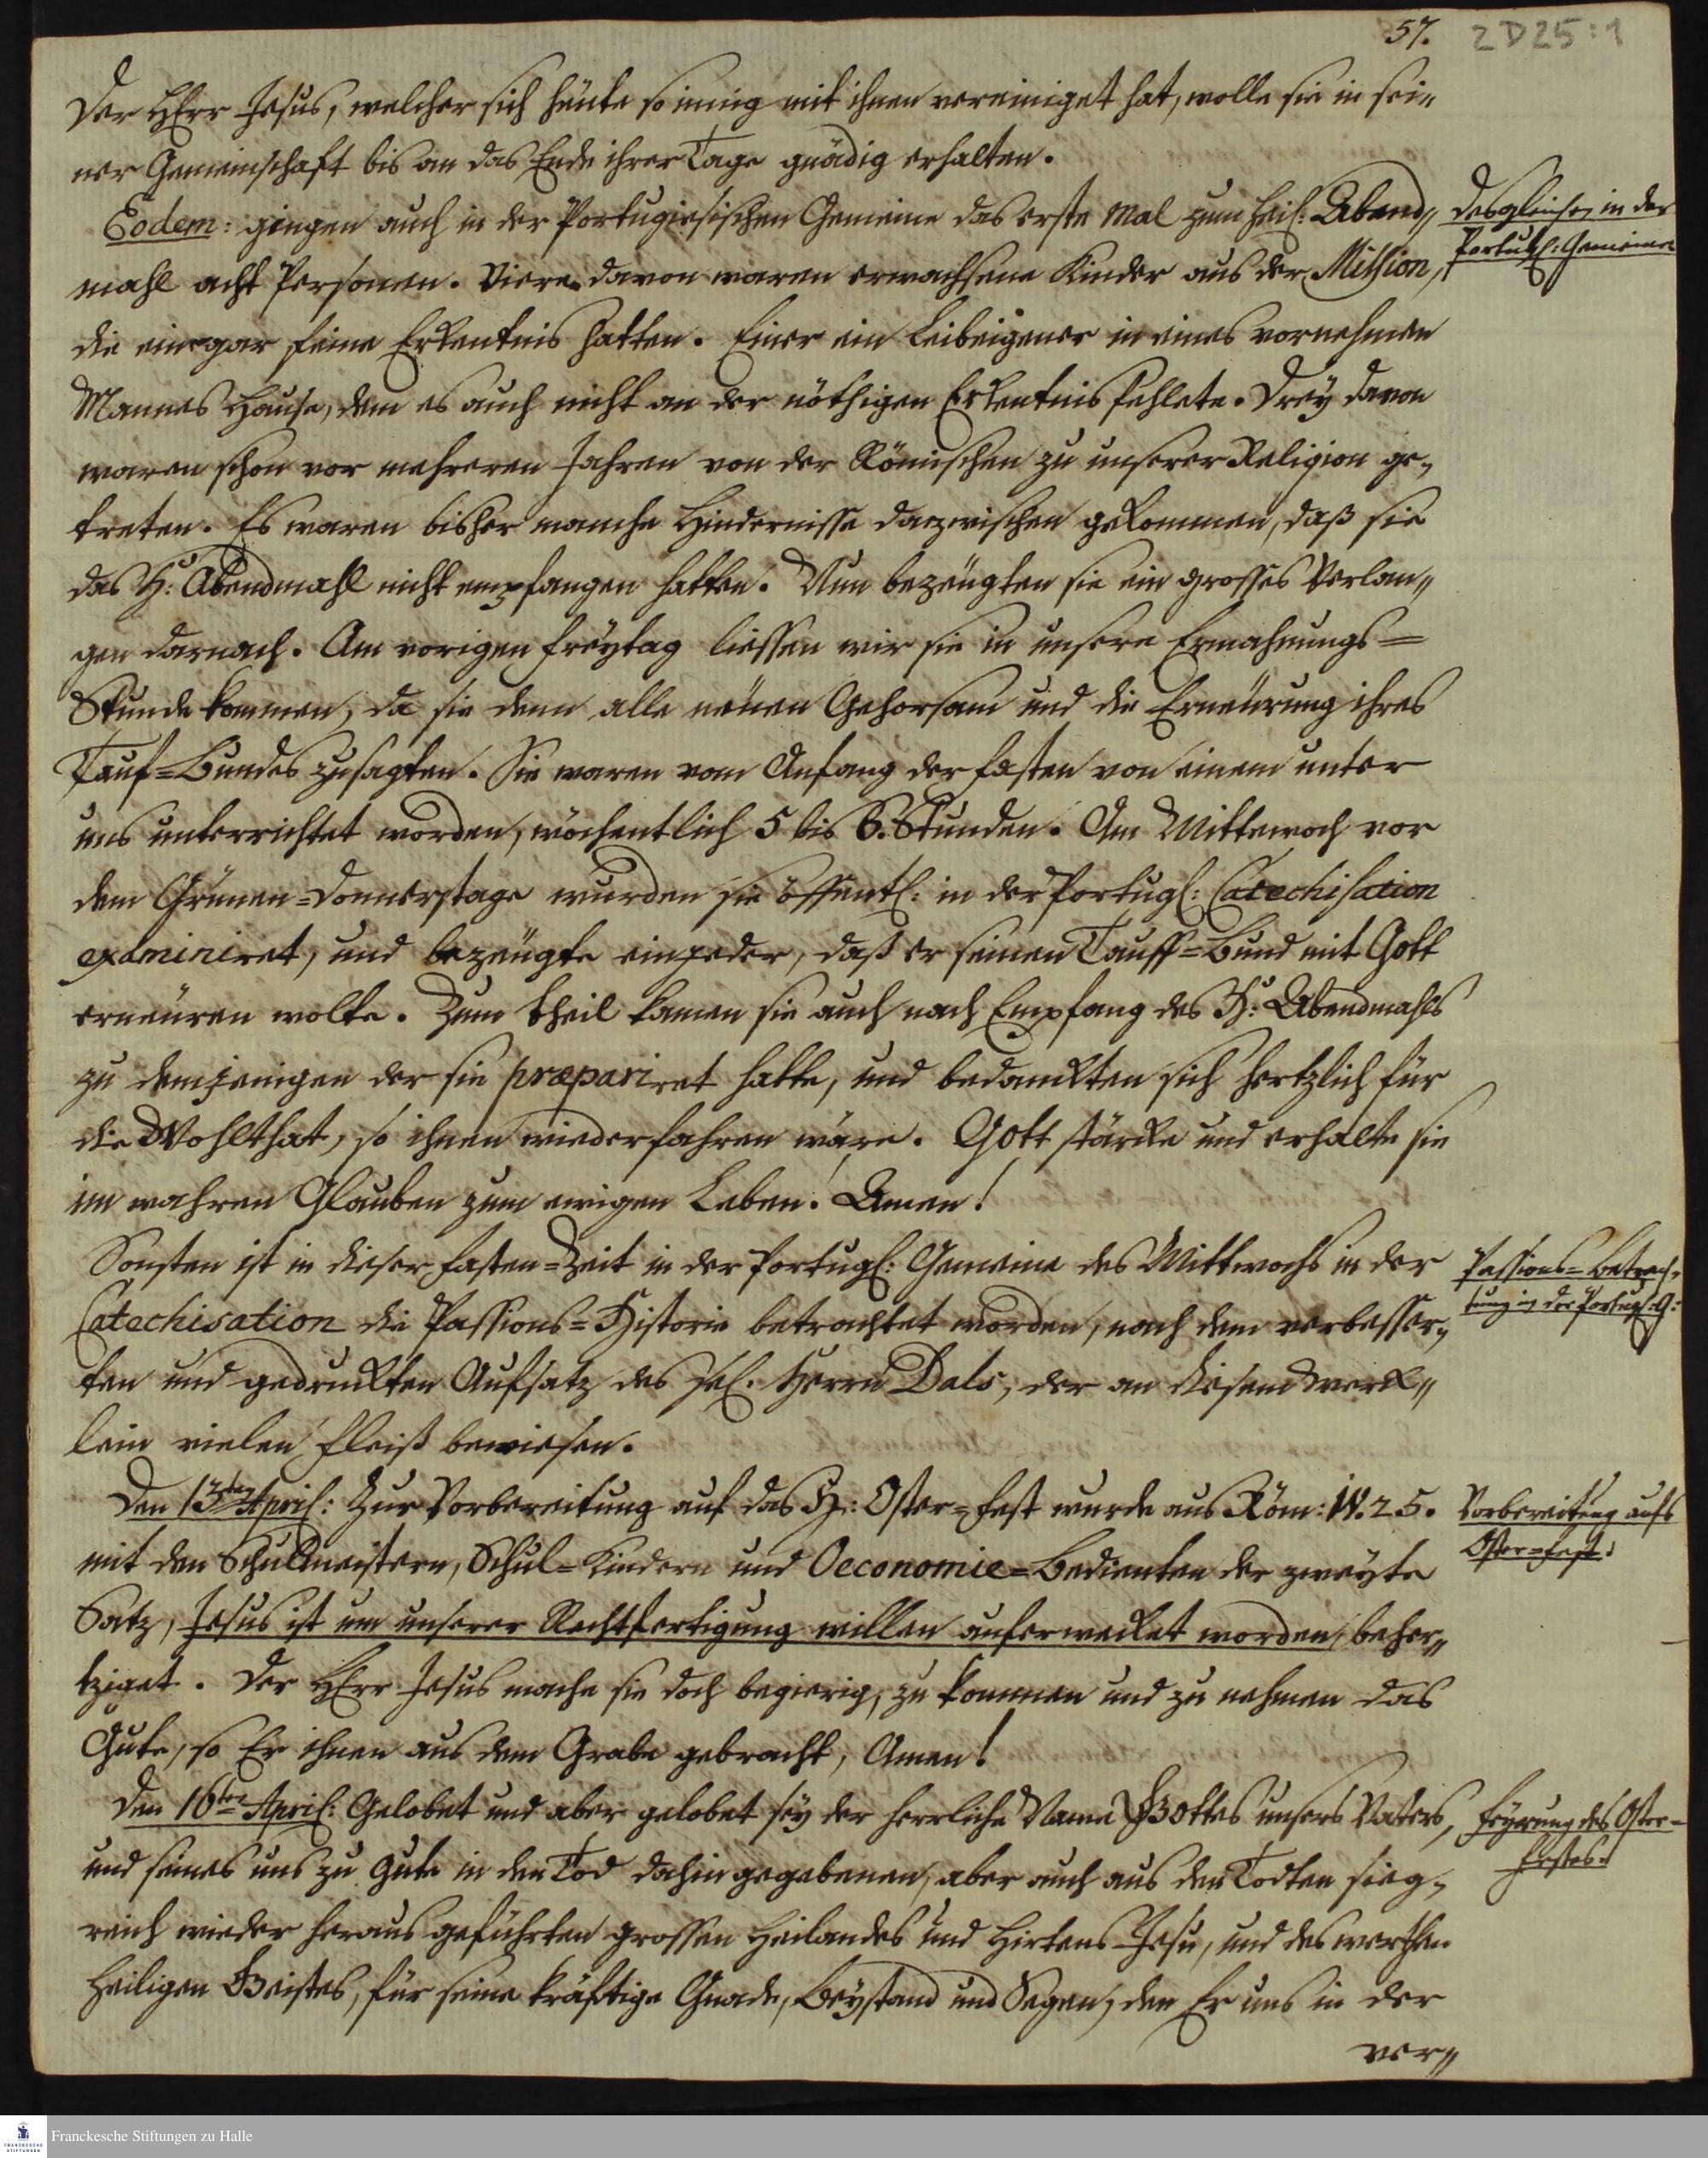 57.
2D25:1
Der HErr Jesus, welcher sich heüte so innig mit ihnen vereiniget hat, wolle sie in sei„
ner Gemeinschaft bis an das Ende ihrer Tage gnädig erhalten.
Eodem: gingen auch in der Portugiesischen Gemeine das erste mal zum Heil: Abend„
desgleichen in der
Portugl: Gemeine
mahl acht Personen. Viere davon waren erwachsene Kinder aus der Mission,
die eine gar feine Erkentnis hatten. Einer ein Leibeigener in eines vornehmen
Mannes Hause, dem es auch nicht an der nöthigen Erkentnis fehlete. Drey davon
waren schon vor mehreren Jahren von der Römischen zu unserer Religion ge„
treten. Es waren bisher manche Hindernisse dazwischen gekommen, daß sie
das H: Abendmahl nicht empfangen hatten. Nun bezeügten sie ein grosses Verlan„
gen darnach. Am vorigen Freytag liessen wir sie in unsere Ermahnungs=
Stunde kommen, da sie denn alle neüen Gehorsam und die Erneürung ihres
Tauf=Bundes zusagten. Sie waren vom Anfang der Fasten von einem unter
uns unterrichtet worden, wöchentlich 5 bis 6. Stunden. Am Mittewoch vor
dem Grünen=Donnerstage wurden sie öffentl: in der Portugl: Catechisation
examiniret, und bezeügte ein jeder, daß er seinen Tauff=Bund mit Gott
erneüren wolte. Zum theil kamen sie auch nach Empfang des H: Abendmahls
zu demjenigen der sie præpariret hatte, und bedanckten sich hertzlich für
die Wohlthat, so ihnen wiederfahren wäre. Gott stärcke und erhalte sie
im wahren Glauben zum ewigen Leben! Amen!
Sonsten ist in dieser Fasten=Zeit in der Portugl: Gemeine des Mittwochs in der
Passions=Betrach„
tung in der Portugl: G:
Catechisation die Passions=Historie betrachtet worden, nach dem verbesser„
ten und gedruckten Aufsatz des sel. Herrn Dals, der an diesem Werck„
lein vielen Fleiß bewiesen.
Den 13ten April: Zur Vorbereitung auf das H: Oster=Fest wurde aus Röm: IV. 25.
Vorbereitung aufs
Oster=Fest.
mit den Schulmeistern, Schul=Kindern und Oeconomie=Bedienten der zweyte
Satz, Jesus ist um unserer Rechtfertigung willen auferwecket worden, beher„
tziget. Der HErr Jesus mache sie doch begierig, zu kommen und zu nehmen das
Gute, so Er ihnen aus dem Grabe gebracht, Amen!
Den 16ten April: Gelobet und aber gelobet sey der herrliche Name Gottes unsers Vaters,
Feyerung des Oster=
Festes.
und seines uns zu Gute in den Tod dahingegebenen, aber auch aus den Todten sieg„
reich wieder heraus geführten grossen Heilandes und Hirtens Jesu, und des werthen
Heiligen Geistes, für seine kräftige Gnade, Beystand und Segen, den Er uns in der
ver„
Franckesche Stiftungen zu Halle